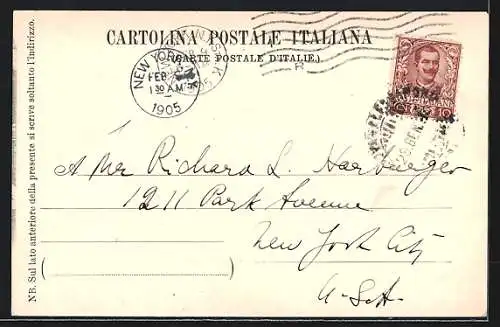 CARTOLINA POSTALE ITALIANA
(CARTE POSTALE D'ITALIE.)
NEW YORK, N.Y.
FEB
1 30 AM
1905
POSTE ITALIANE
A Mr Richard L. Harburger
1211 Park Avenue
New York City
U.S.A.
NB. Sul lato anteriore della presente si scrive soltanto l'indirizzo.